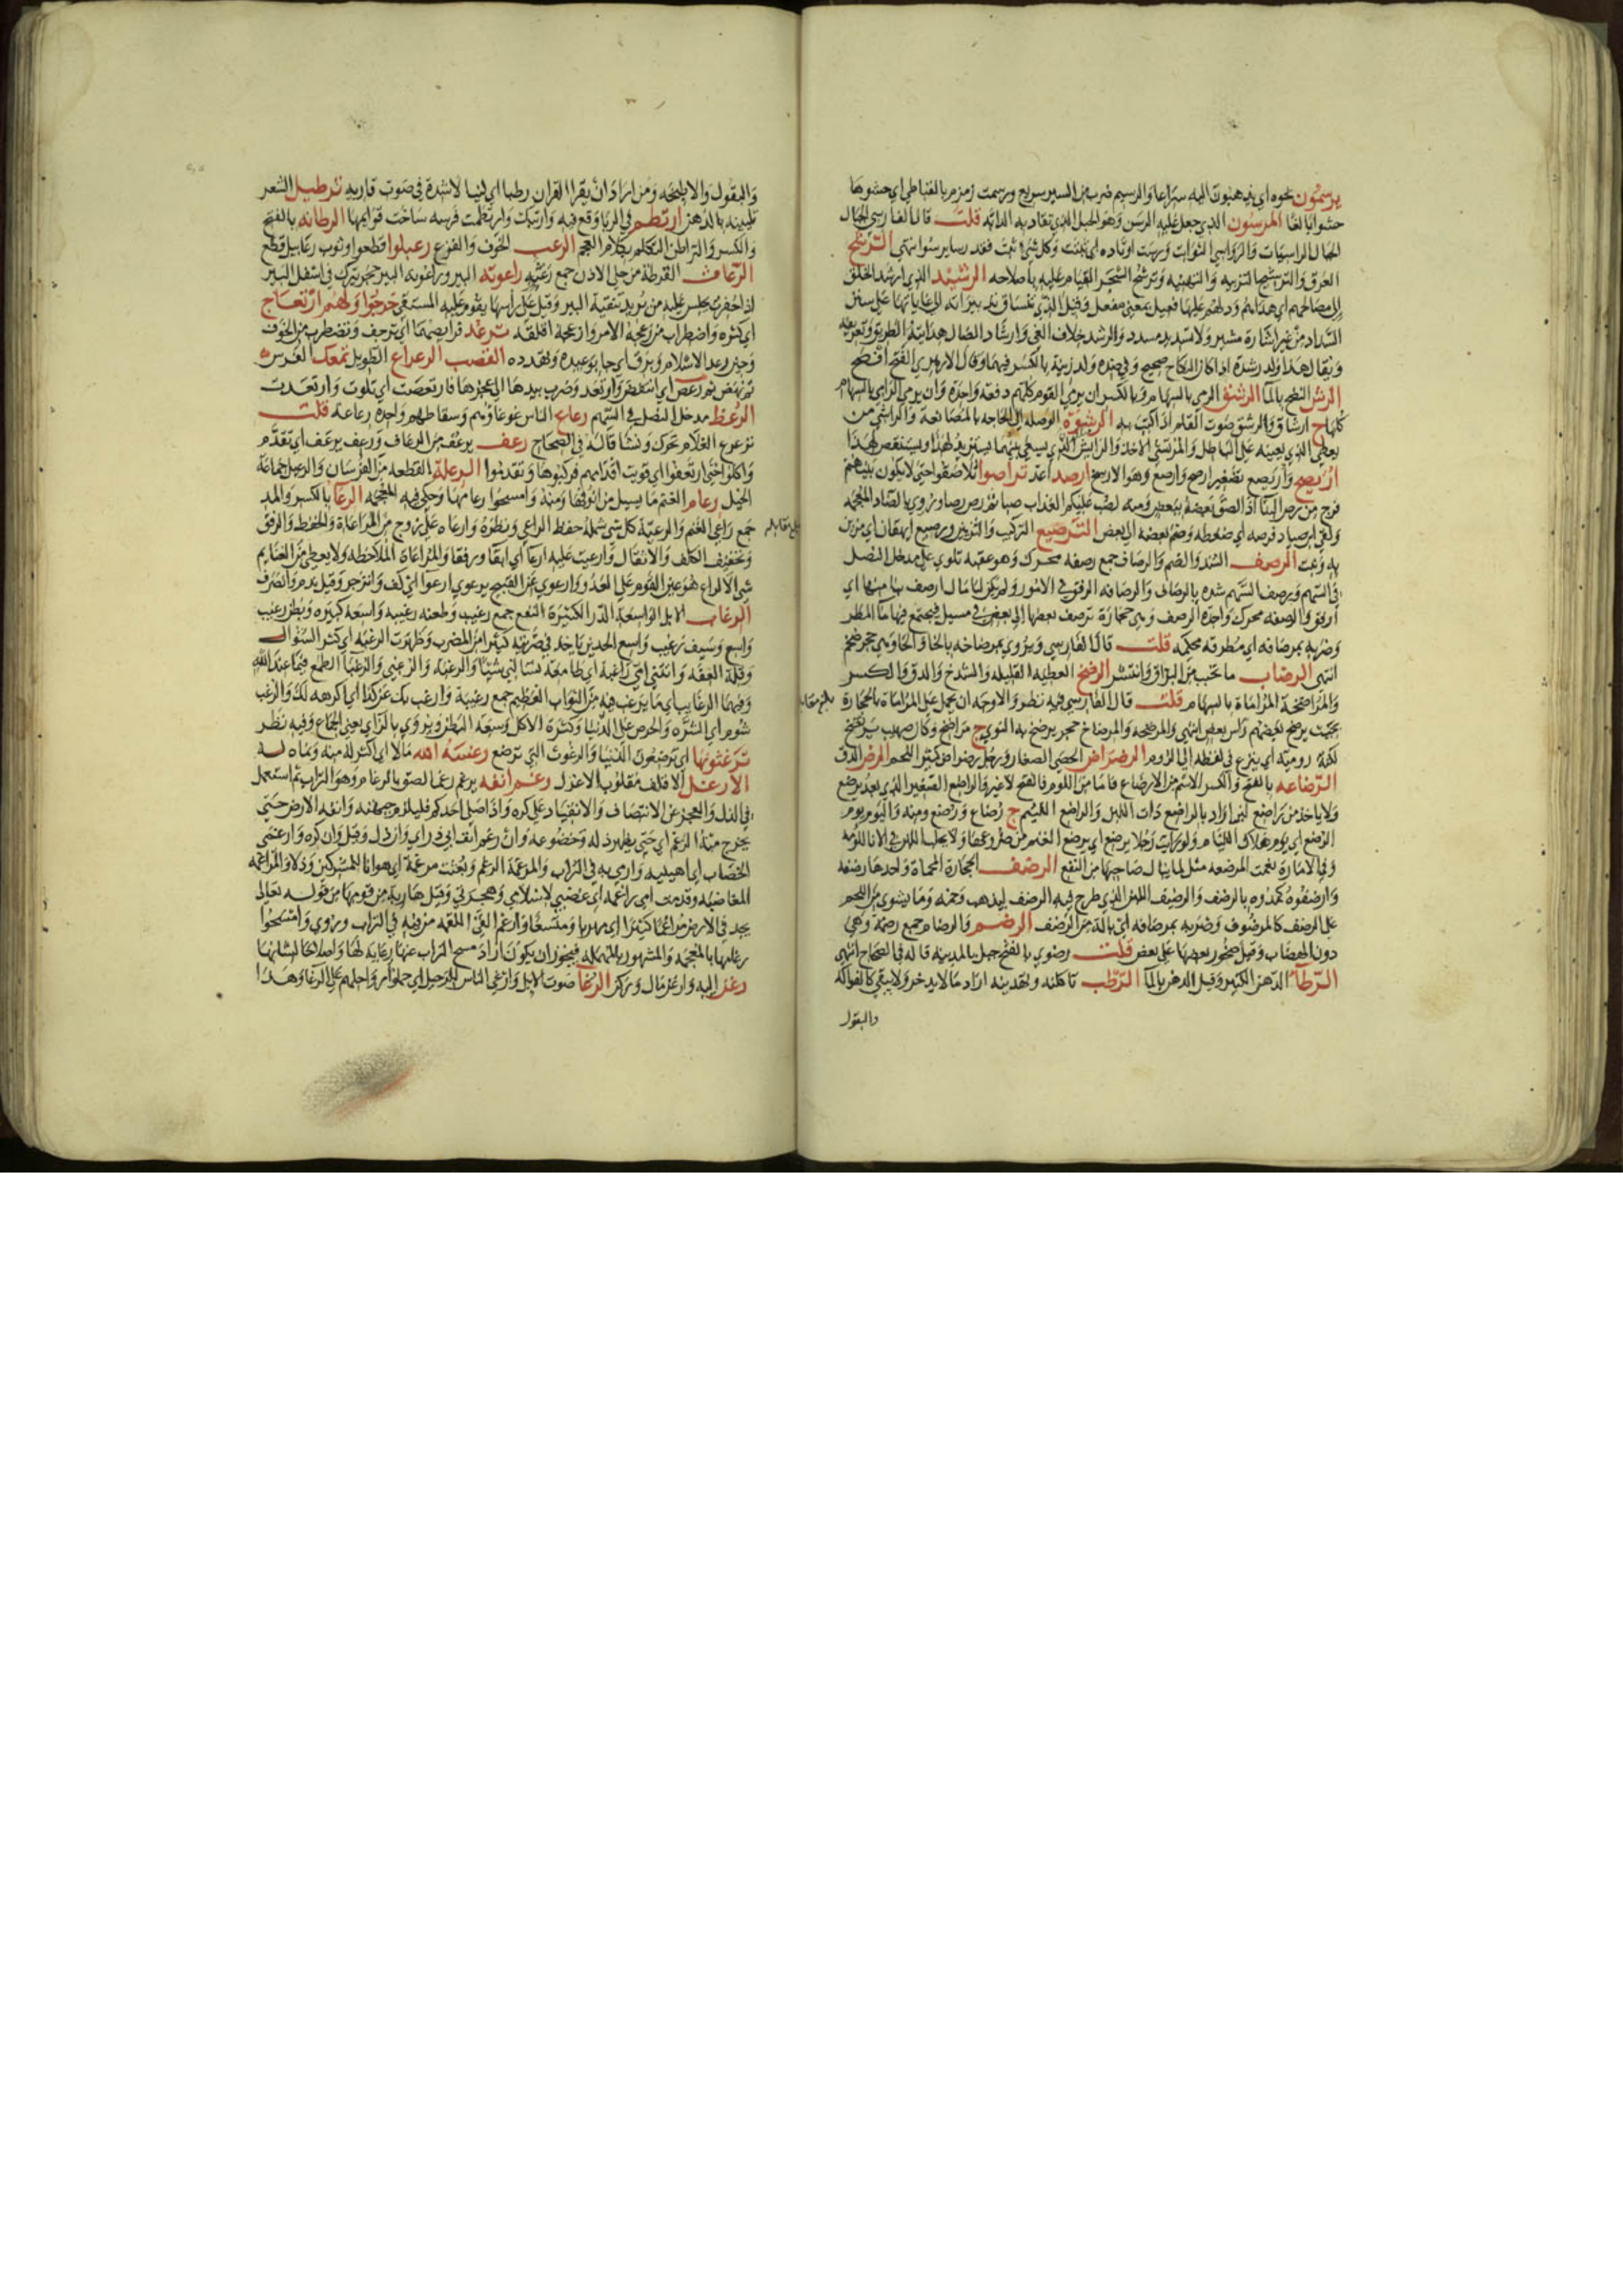 يرسمون نحوه اي يذهبون اليه سراعا والرسيم ضرب من السير سريع ورسمت زمزم بالقباطي اي حشوها
حشوا بالغا المرسون الذي جعل عليه الرسن وهو الحبل الذي تقاد به الدابة قلت قال الفارسي الجبال
الجبال الراسيات والرواسي الثوابت ورست اوتاده اي ثبتت وكل شيء ثبت فقد رسا يرسوا انتهى الترشح
العرق والترشيح التربيه والتهيئه وترشح الشجر القيام عليه باصلاحه الرشيد الذي ارشد الخلق
الى مصالحهم اي هداهم ودلهم عليها فعيل بمعنى مفعل وقيل الذي تنساق تدبيراته الى غاياتها على سنن
السداد من غير اشارة مشير ولا تسديد مسدد والرشد خلاف الغي وارشاد الضال هدايته الطريق وتعريفه
ويقال هذا ولد رشدة اذا كان لنكاح صحيح وفي ضده ولد زنية بالكسر فيهما وقال الازهري الفتح افصح
الرش النضح بالماء الرشق الرمي بالسهام وبالكسر ان يرمي القوم كلهم دفعة واحدة وان يرمي الرامي بالسهام
كلها ج ارشاق والرشق صوت القلم اذا كتب به الرشوة الوصلة الى الحاجه بالمصانعة والراشي من
يعطي الذي يعينه على الباطل والمرتشي الاخذ والرايش الذي يسعى بينهما يستزيد لهذا ويستنقص لهذا
اريصح واريصع تصغير ارصح وارصع وهو الارسح ارصد اعد تراصوا تلاصقوا حتى لا يكون بينهم
فرج من رص البناء اذا لصق بعضه ببعض ومنه لصب عليكم العذاب صبا ثم لرص رصا وروي بالضاد المعجمه
ولقي ابن صياد فرصه اي ضغطه وضم بعضه الى بعض الترصيع التركيب والتزيين ورصيع ايهقان اي مزين
به وعت الرصف الشد والضم والرصاف جمع رصفه محرك وهو عقبة تلوي على مدخل النصل
في السهم ويرصف السهم شده بالرصاف والرصافه الرفق في الامور ولم يكن لنا مال ارصف بنا منها اي
ارفق والرصفه محرك واحدة الرصف وهي حجارة ترصف بعضها الى بعض في مسيل فيجتمع فيها ماء المطر
وضربه بمرصافه اي مطرقة محكمه قلت قال الفارسي ويروي بمرضاخه بالخا والحا وهي حجر ضخم
انتهى الرضاب ما تحبب من البزاق وانتشر الرضخ العطيه القليله والشدخ والدق والكسر
والمراضخة المراماة بالسهام قلت قال الفارسي فيه نظر والاوجه ان يحمل على المراماة بالحجارة
بحيث يرضخ بعضهم راس بعض انتهى والمرضخه والمرضاخ حجر يرضخ به النوي ج مراضخ وكان صهيب يرتضخ
لكنة روميه اي ينزع في لفظه الى الروم الرضراض الحصى الصغار ورجل رضراض كثير اللحم الرض الدق
الرضاعه بالفتح والكسر الاسم من الارضاع فاما من اللوم فالفتح لا غير والراضع الصغير الذي بعد يرضع
ولا ياخذ من راضع لبن اراد بالراضع ذات اللبن والراضع اللئيم ج رضاع ورضع ومنه واليوم يوم
الرضع اي يوم هلاك اللئام ولو رايت رجلا يرضع اي يرضع الغنم من ضروعها ولا يحلب اللبن في الاناء للؤمه
وفي الامارة نعمت المرضعه مثل لما ينال صاحبها من النفع الرضف الحجارة المحماة واحدها رضفه
وارضفوه كمدوه بالرضف والرضيف اللبن الذي طرح فيه الرضف ليذهب وخمه وما يشوي من اللحم
على الرضف كالمرضوف وضربه بمرضافة اي بالة من الرضف الرضم والرضام جمع رضمة وهي
دون الهضاب وقيل صخور بعضها على بعض قلت رضوي بالفتح جبل بالمدينة قاله في الصحاح انتهى
الرطاء الدهن الكثير وقيل الدهن بالماء الرطب تاكلنه وتهدينه اراد ما لا يدخر ولا يبقي كالفواكه
والبقول
والبقول والاطبخه ومن اراد ان يقرا القران رطبا اي لينا لا شدة في صوت قاريه ترطيل الشعر
تليينه بالدهن ارتطم في الربا وقع فيه وارتبك وارتطمت فرسه ساخت قوايمها الرطانه بالفتح
والكسر والتراطن التكلم بكلام العجم الرعب الخوف والفزع رعبلوا قطعوا وثوب رعابيل قطع
الرعاث القرطة من حلي الاذن جمع رعثه راعوثة البير وراعوفه البير حجر يترك في اسفل البير
اذا حفرت يجلس عليه من يريد تنقية البير وقيل على راسها يقوم عليه المستقي خرجوا ولهم ارتعاج
اي كثره واضطراب من رعجه الامر وازعجه اقلقه ترعد فرايصهما اي ترجف وتضطرب من الخوف
وحين رعد الاسلام وبرق اي جا بوعيده وتهدده القصب الرعراع الطويل تمعك الفرس
ثم نهض ثم رعص اي انتفض وارتعد وضرب بيدها الى عجزها فارتعصت اي تلوت وارتعدت
الرعظ مدخل النصل في السهم رعاع الناس غوغاؤهم وسقاطهم واحده رعاعة قلت
ترعرع الغلام تحرك ونشا قاله في الصحاح رعف يرعف من الرعاف ورعف يرعف اي تقدم
واكلوا حتى ارتعفوا اي قويت اقدامهم فركبوها وتقدموا الرعلة القطعه من الفرسان والرعيل جماعة
الخيل رعام الغنم ما يسيل من انوفها ومنه وامسحوا رعامها وحكي فيه المعجمه الرعاء بالكسر والمد
جمع راعي الغنم والرعية كل شي شمله حفظ الراعي ونظره وارعاه على زوج من المراعاة والحفظ والرفق
وتخفيف الكلف والاثقال وارعيت عليه ارعاء اي ابقاء ورفقا والمراعاة الملاحظه ولا يعطى من الغنايم
شي الا لراع هو عين القوم على العدو وارعوي عن القبيح يرعوي ارعوا اي كف وانزجر وقيل ندم وانصرف
الرغاب الابل الواسعة الدر الكثيرة النفع جمع رغيب وطعنه رغيبه واسعه كبيره وبطن رغيب
واسع وسيف رغيب واسع الحدين ياخذ في ضربته كثيرا من المضرب وظهرت الرغبه اي كثر السؤال
وقلة العفه واتتني امي راغبة اي طامعة تسالني شيئا والرغبه والرغبى والرغباء الطمع فيما عند الله
وفيها الرغايب اي ما يرغب فيه من الثواب العظيم جمع رغيبة وارغب بك عن كذا اي اكرهه لك والرغب
شوم اي الشره والحرص على الدنيا وكثرة الاكل وسعة البطن ويروي بالزاي يعني الجماع وفيه نظر
ترغثونها اي ترضعون الدنيا والرغوث التي ترضع رغسه الله مالا اي اكثر له منه ونماه له
الارغل الاقلف مقلوب الاغرل رغم انفه يرغم رغما لصق بالرغام وهو التراب ثم استعمل
في الذل والعجز عن الانتصاف والانقياد على كره واذا صلى احدكم فليلزم جبهته وانفه الارض حتى
يخرج منه الرغم اي حتى يظهر ذله وخضوعه وان رغم انف ابي ذر اي وان ذل وقيل وان كره وارغمي
الخضاب اي اهينيه وارمي به في التراب والمرغمة الرغم وبعثت مرغمة اي هوانا للمشركين وذلا والمراغمه
المغاضبه وقدمت امي راغمة اي غضبي لاسلامي وهجرتي وقيل هاربة من قومها من قوله تعالى
يجد في الارض مراغما كثيرا اي مهربا ومتسعا وارغم القى اللقمه من فيه في التراب وروي وامسحوا
رغامها بالمعجمه والمشهور بالمهمله فيجوز ان يكون اراد مسح التراب عنها رعاية لها واصلاحا لشانها
رغن اليه وارغن مال وركن الرغاء صوت الابل وارغى الناس للرحيل اي حملوا رواحلهم على الرغا وهذا